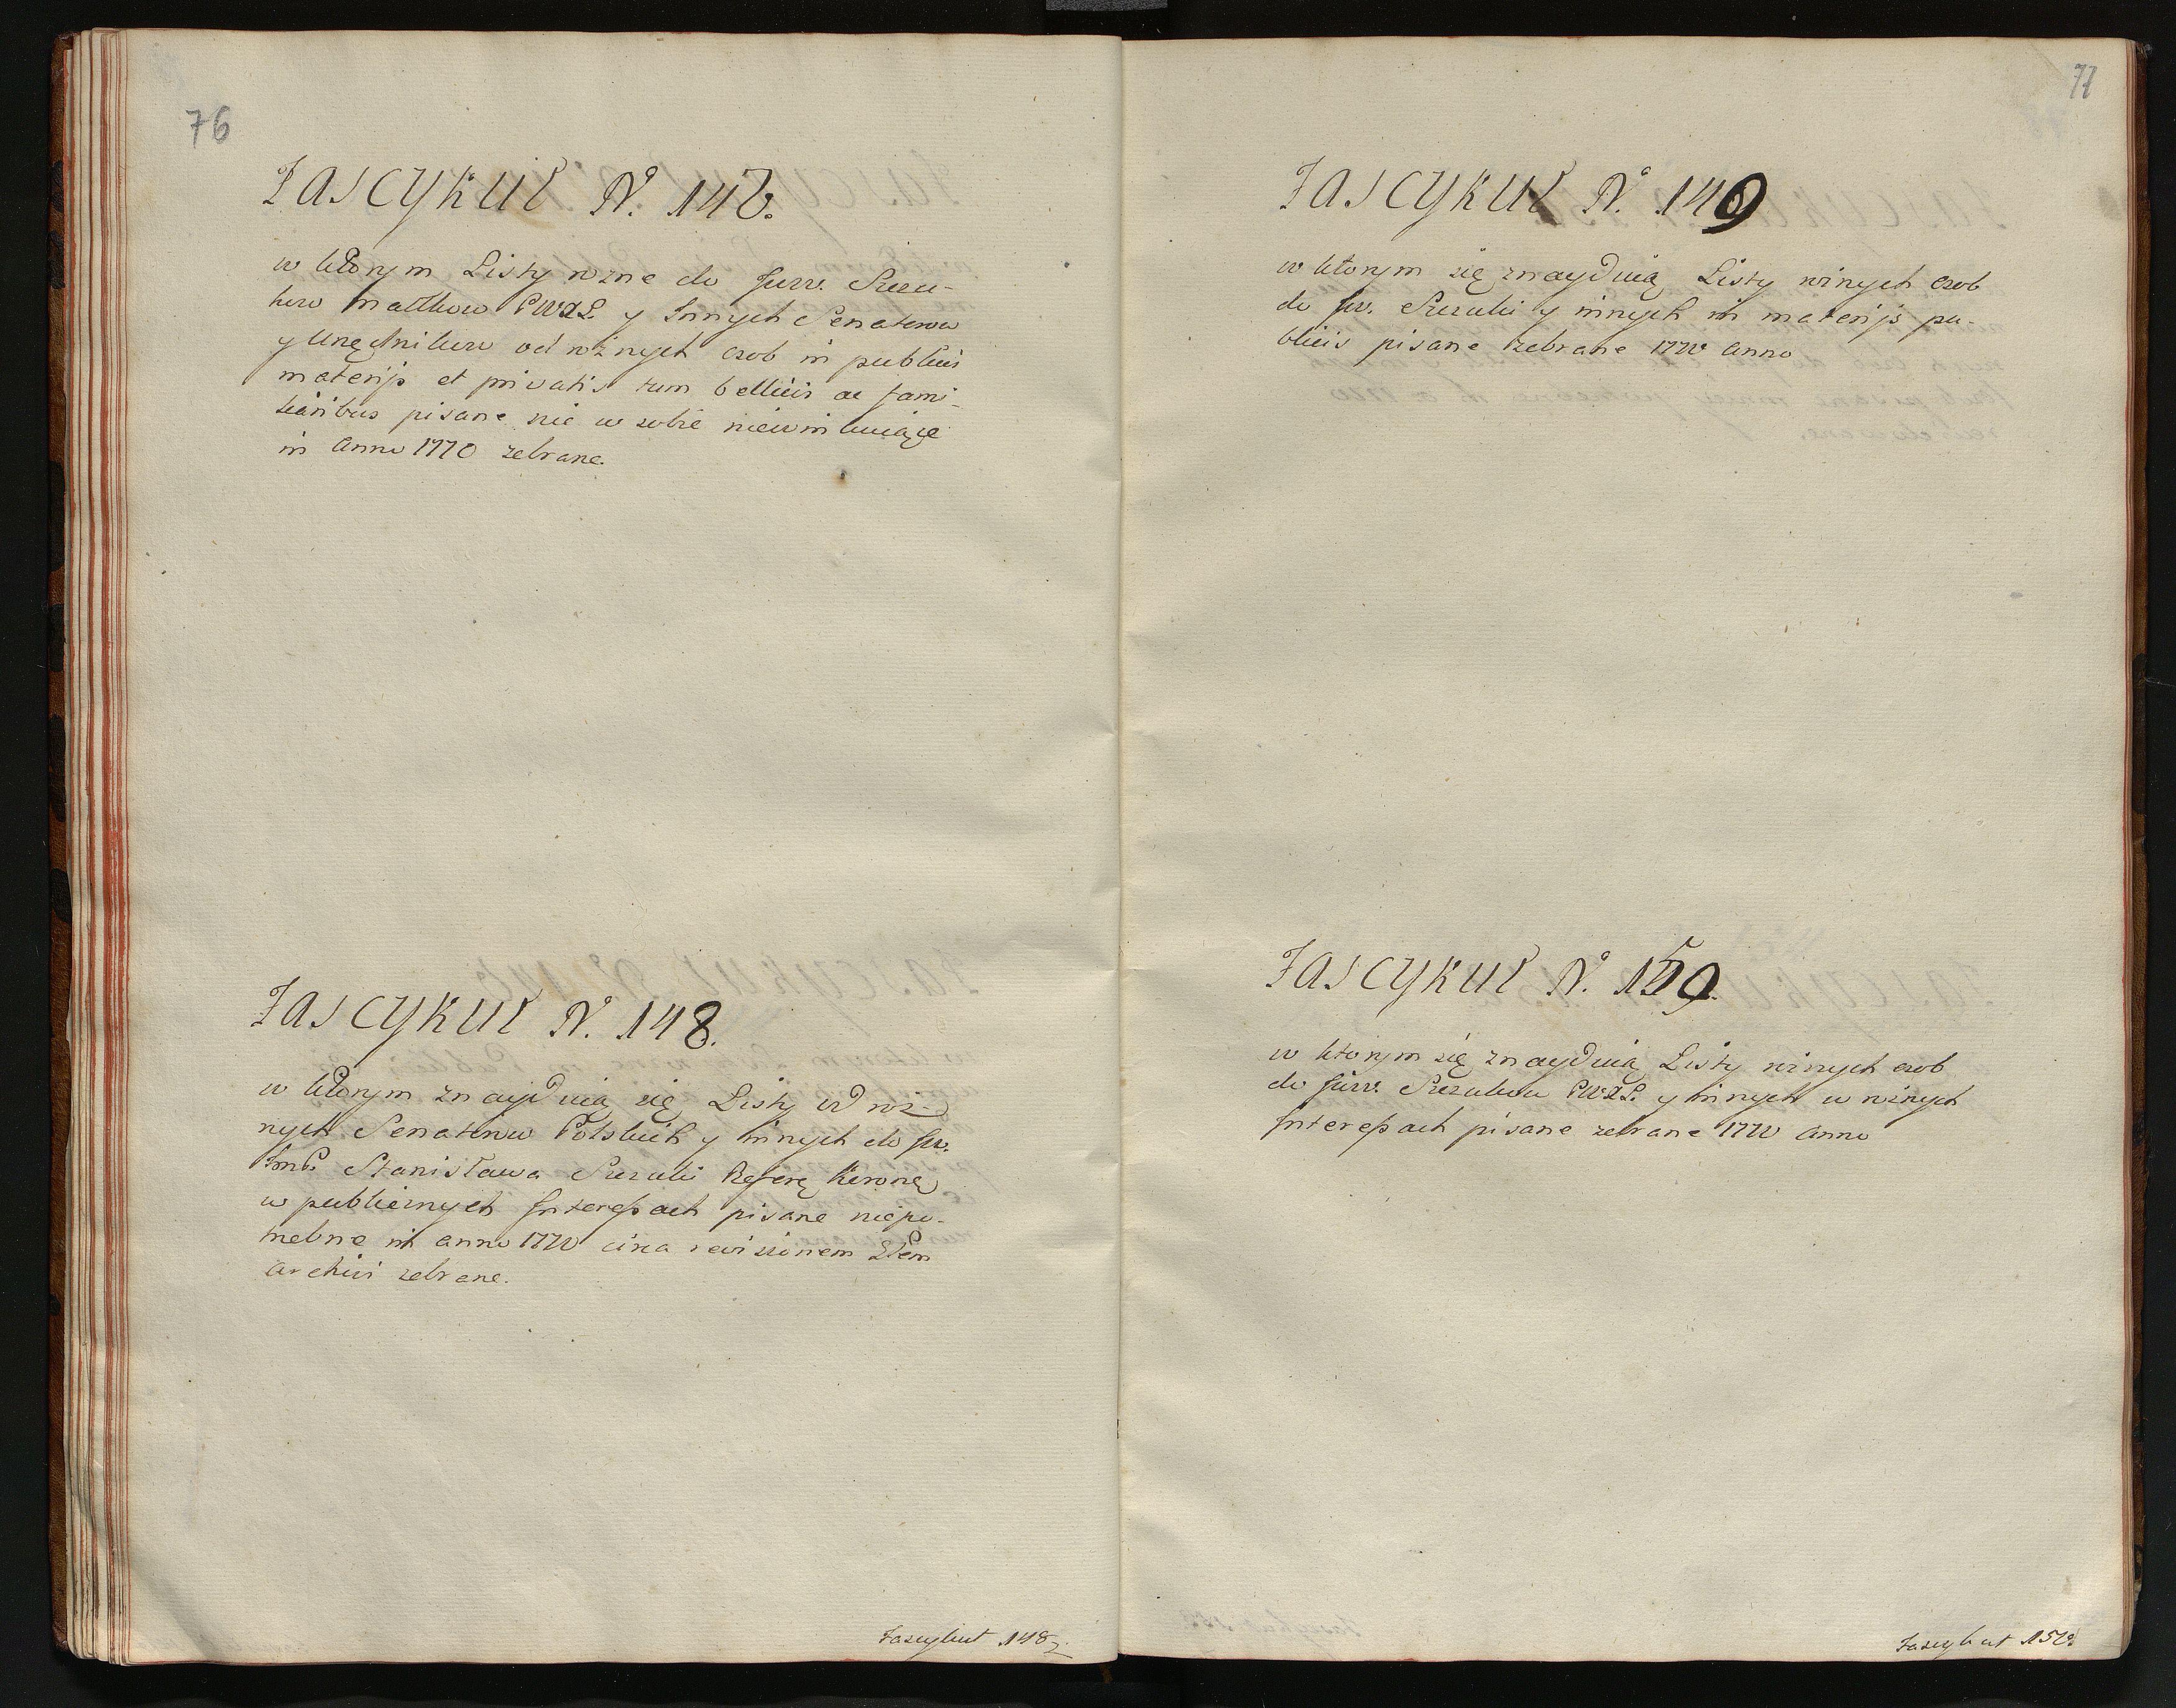 76
Fascykuł N. 147.
w ktorym Listy rożne do Jww. Szczu-
kow Matthow PWXL. y Innych Senatorow
y Urzędnikow od rożnych osob in publicis
materijs et privatis tum bellicis ac fami-
liaribus pisane nic w sobie niewinkuiące
in Anno 1770 zebrane.
Fascykuł N. 148.
w ktorym znayduią się Listy od roż-
nych Senatorow Polskich y innych do Jw.
Jmć. Stanisława Szczuki Refere. Koronę.
w publicznych Interessach pisane niepo-
trzebne in anno 1770 circa revisionem
Archivi zebrane.
Fascykuł 148
77
Fascykuł N. 149
w ktorym się znayduią Listy rożnych osob
do Jw. Szczuki y innych in materijs pu-
blicis pisane zebrane 1770 Anno
Fascykuł N. 150.
w ktorym się znayduią Listy rożnych osob
do Jww. Szczukow PWXL. y innych w rożnych
Interessach pisane zebrane 1770 Anno
Fascykuł 150